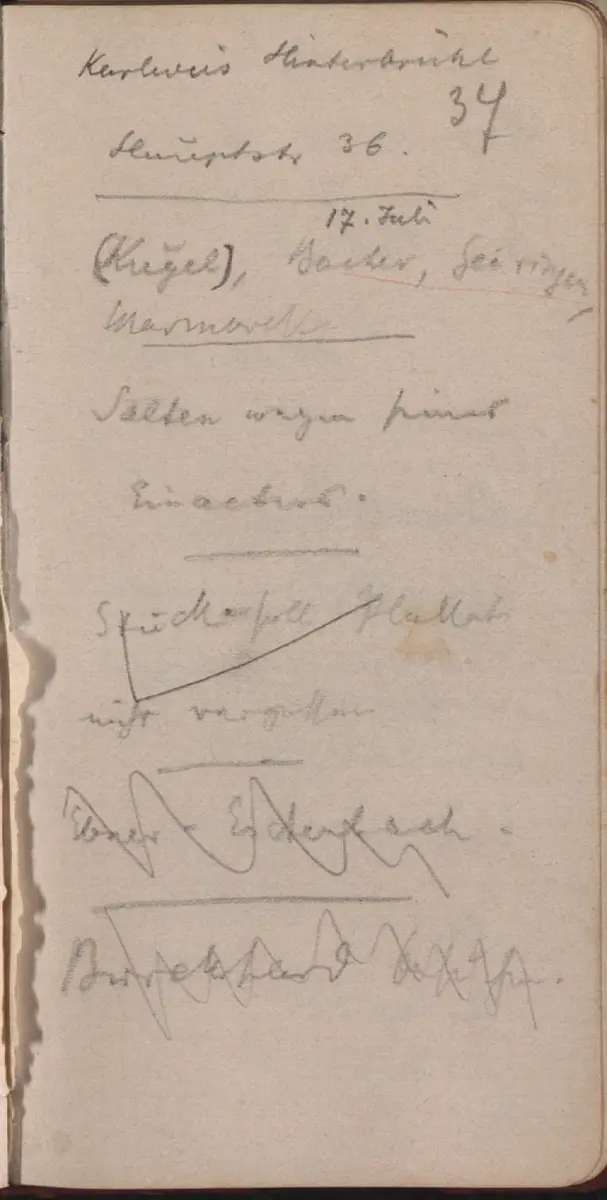 Karlweis Hinterbrühl
34
Hauptstr 36.
17. Juli
(Kugel), Bacher, Seeringer,
Marmorek
Salten wegen seines
Einacters.
Stück soll
nicht vergessen
Ebner-Eschenbach.
Burckhard